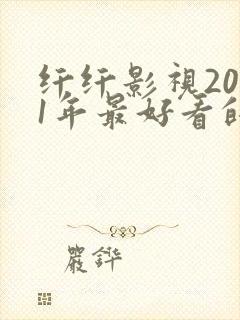 纤纤影视20
1年最好看的
嚴鏵